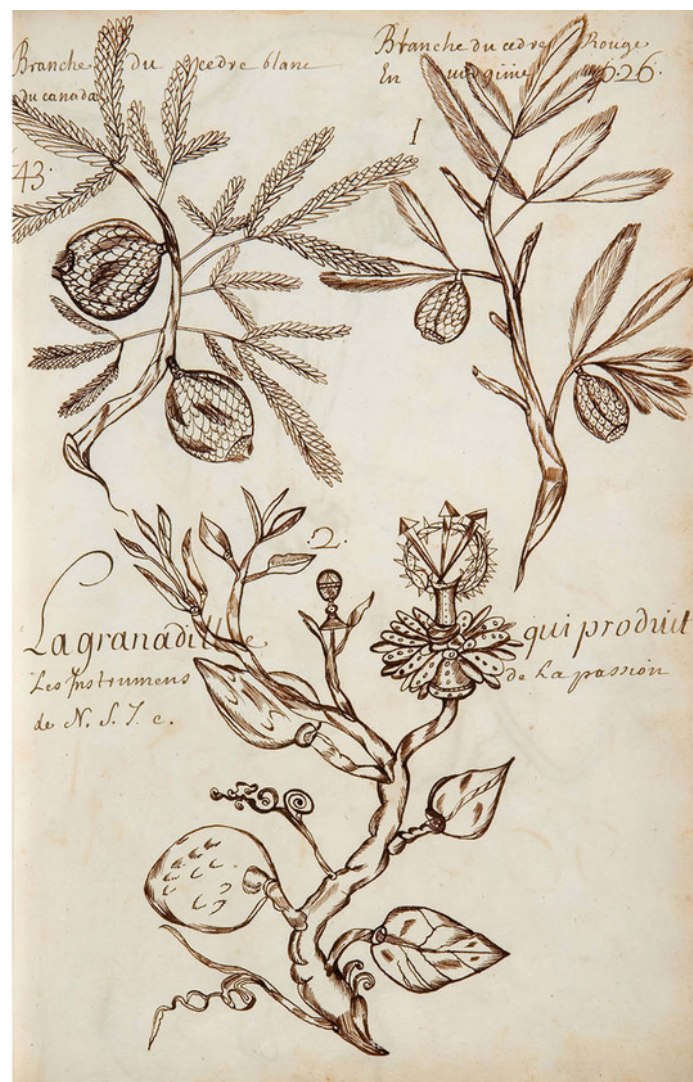 Branche du cedre blanc
du canada
43.
Branche du cedre Rouge
En uirginie p.26.
I
2.
La granadille qui produit
Les Instrumens de La passion
de N. S. J. c.